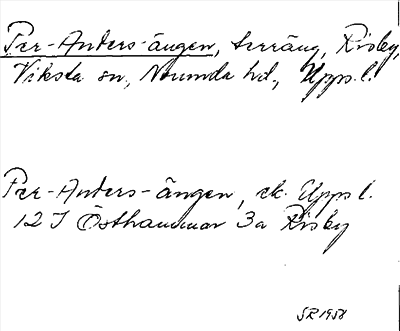 Per-Anders-ängen, terräng, Risby,
Viksta sn, Norunda hd., Upps. l.
Per-Anders-ängen, ek. Upps l.
12 I Östhammar 3a Risby
SR 1958